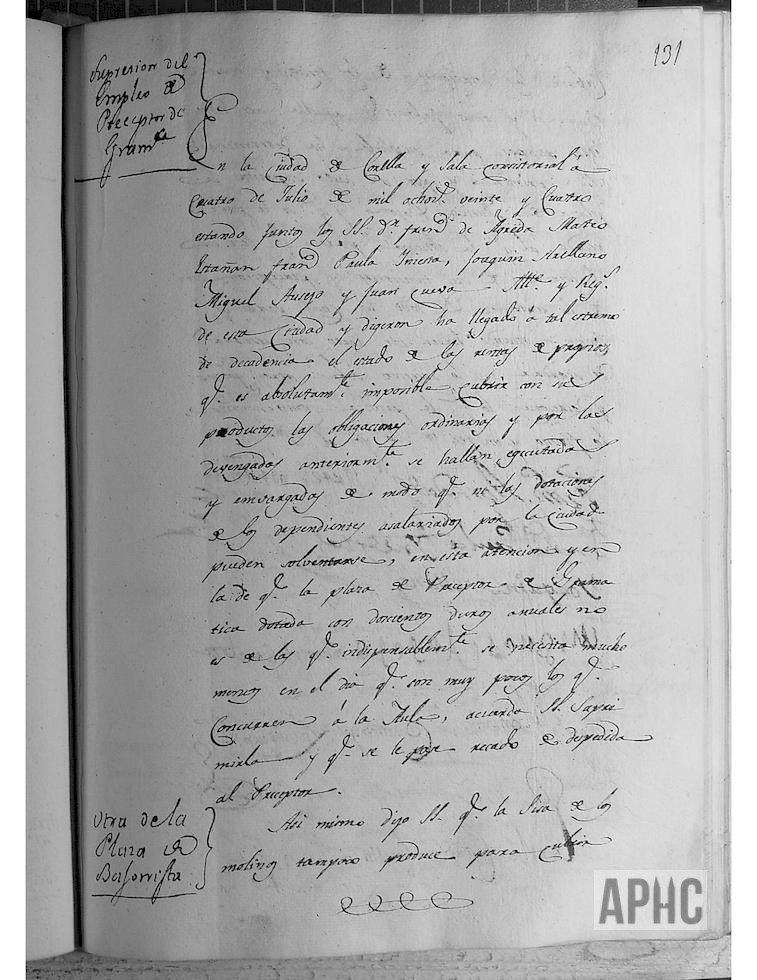 131
Supresion del
Empleo de
Preceptor de
Gram.ca
En la Ciudad de Corella y Sala consistorial à
Cuatro de Julio de mil ochos.s veinte y Cuatro
estando juntos los SS. D.n fran.co de Agreda Mateo
Estañan fran.co Paula Iniesta, Joaquin Arellano
Miguel Ausejo y Juan Cueva Alc.e y Reg.s
de esta Ciudad y digeron ha llegado à tal estremo
de decadencia el estado de las rentas de propios,
q.e es absolutam.te imposible cubrir con sus
productos las obligaciones ordinarias y por las
devengadas anteriorm.te se hallan egecutadas
y embargadas de modo q.e ni las dotaciones
de los dependientes asalariados por la Ciudad
pueden solventarse, en esta atencion y en
la de q.e la plaza de Preceptor de Grama
tica dotada con docientos duros anuales no
es de las q.e indispensablem.te se necesita mucho
menos en el dia q.e son muy pocos los q.e
Concurren à la Aula, acuerda SS. Supri
mirla y q.e se le pase recado de despedida
al Preceptor.
Otra de la
Plaza de
Bastonista
Asi mismo dijo SS. q.e la Sisa de los
molinos tampoco produce para cubrir
APHC